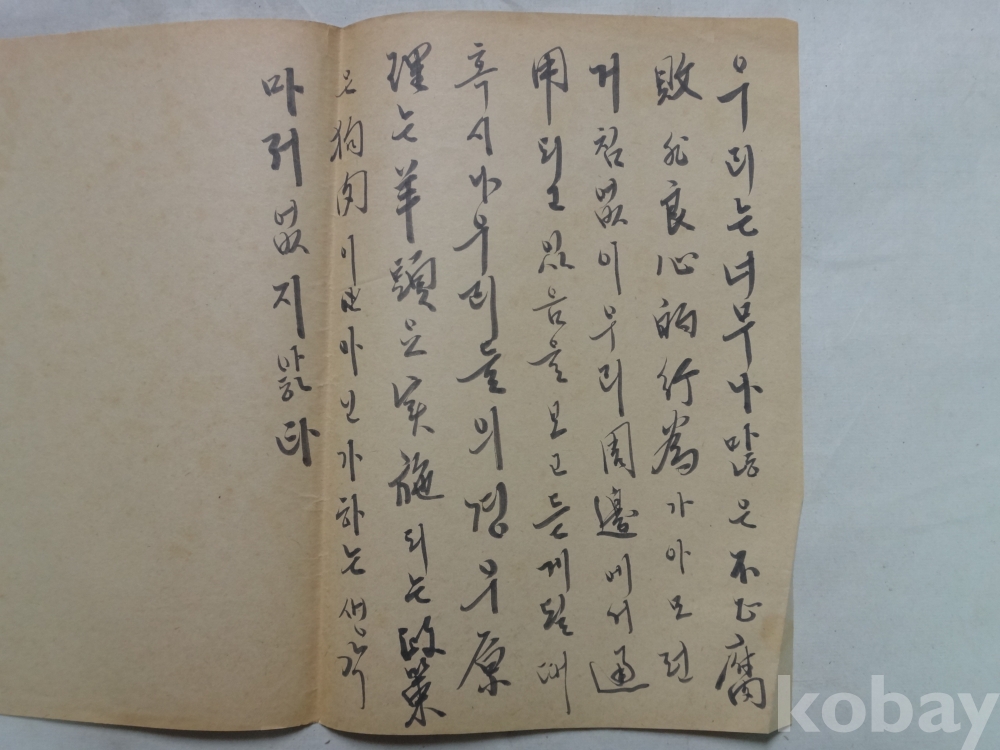 우리는 너무나 많은 不正腐
敗 非良心的 行爲가 아모런
거침없이 우리 周邊에서 通
用되고 있음을 보고 듣게 될 때
혹시나 우리들의 경우 原
理는 羊頭요 実施되는 政策
은 狗肉이 아닌가 하는 생각
마저 없지 않다
kobay